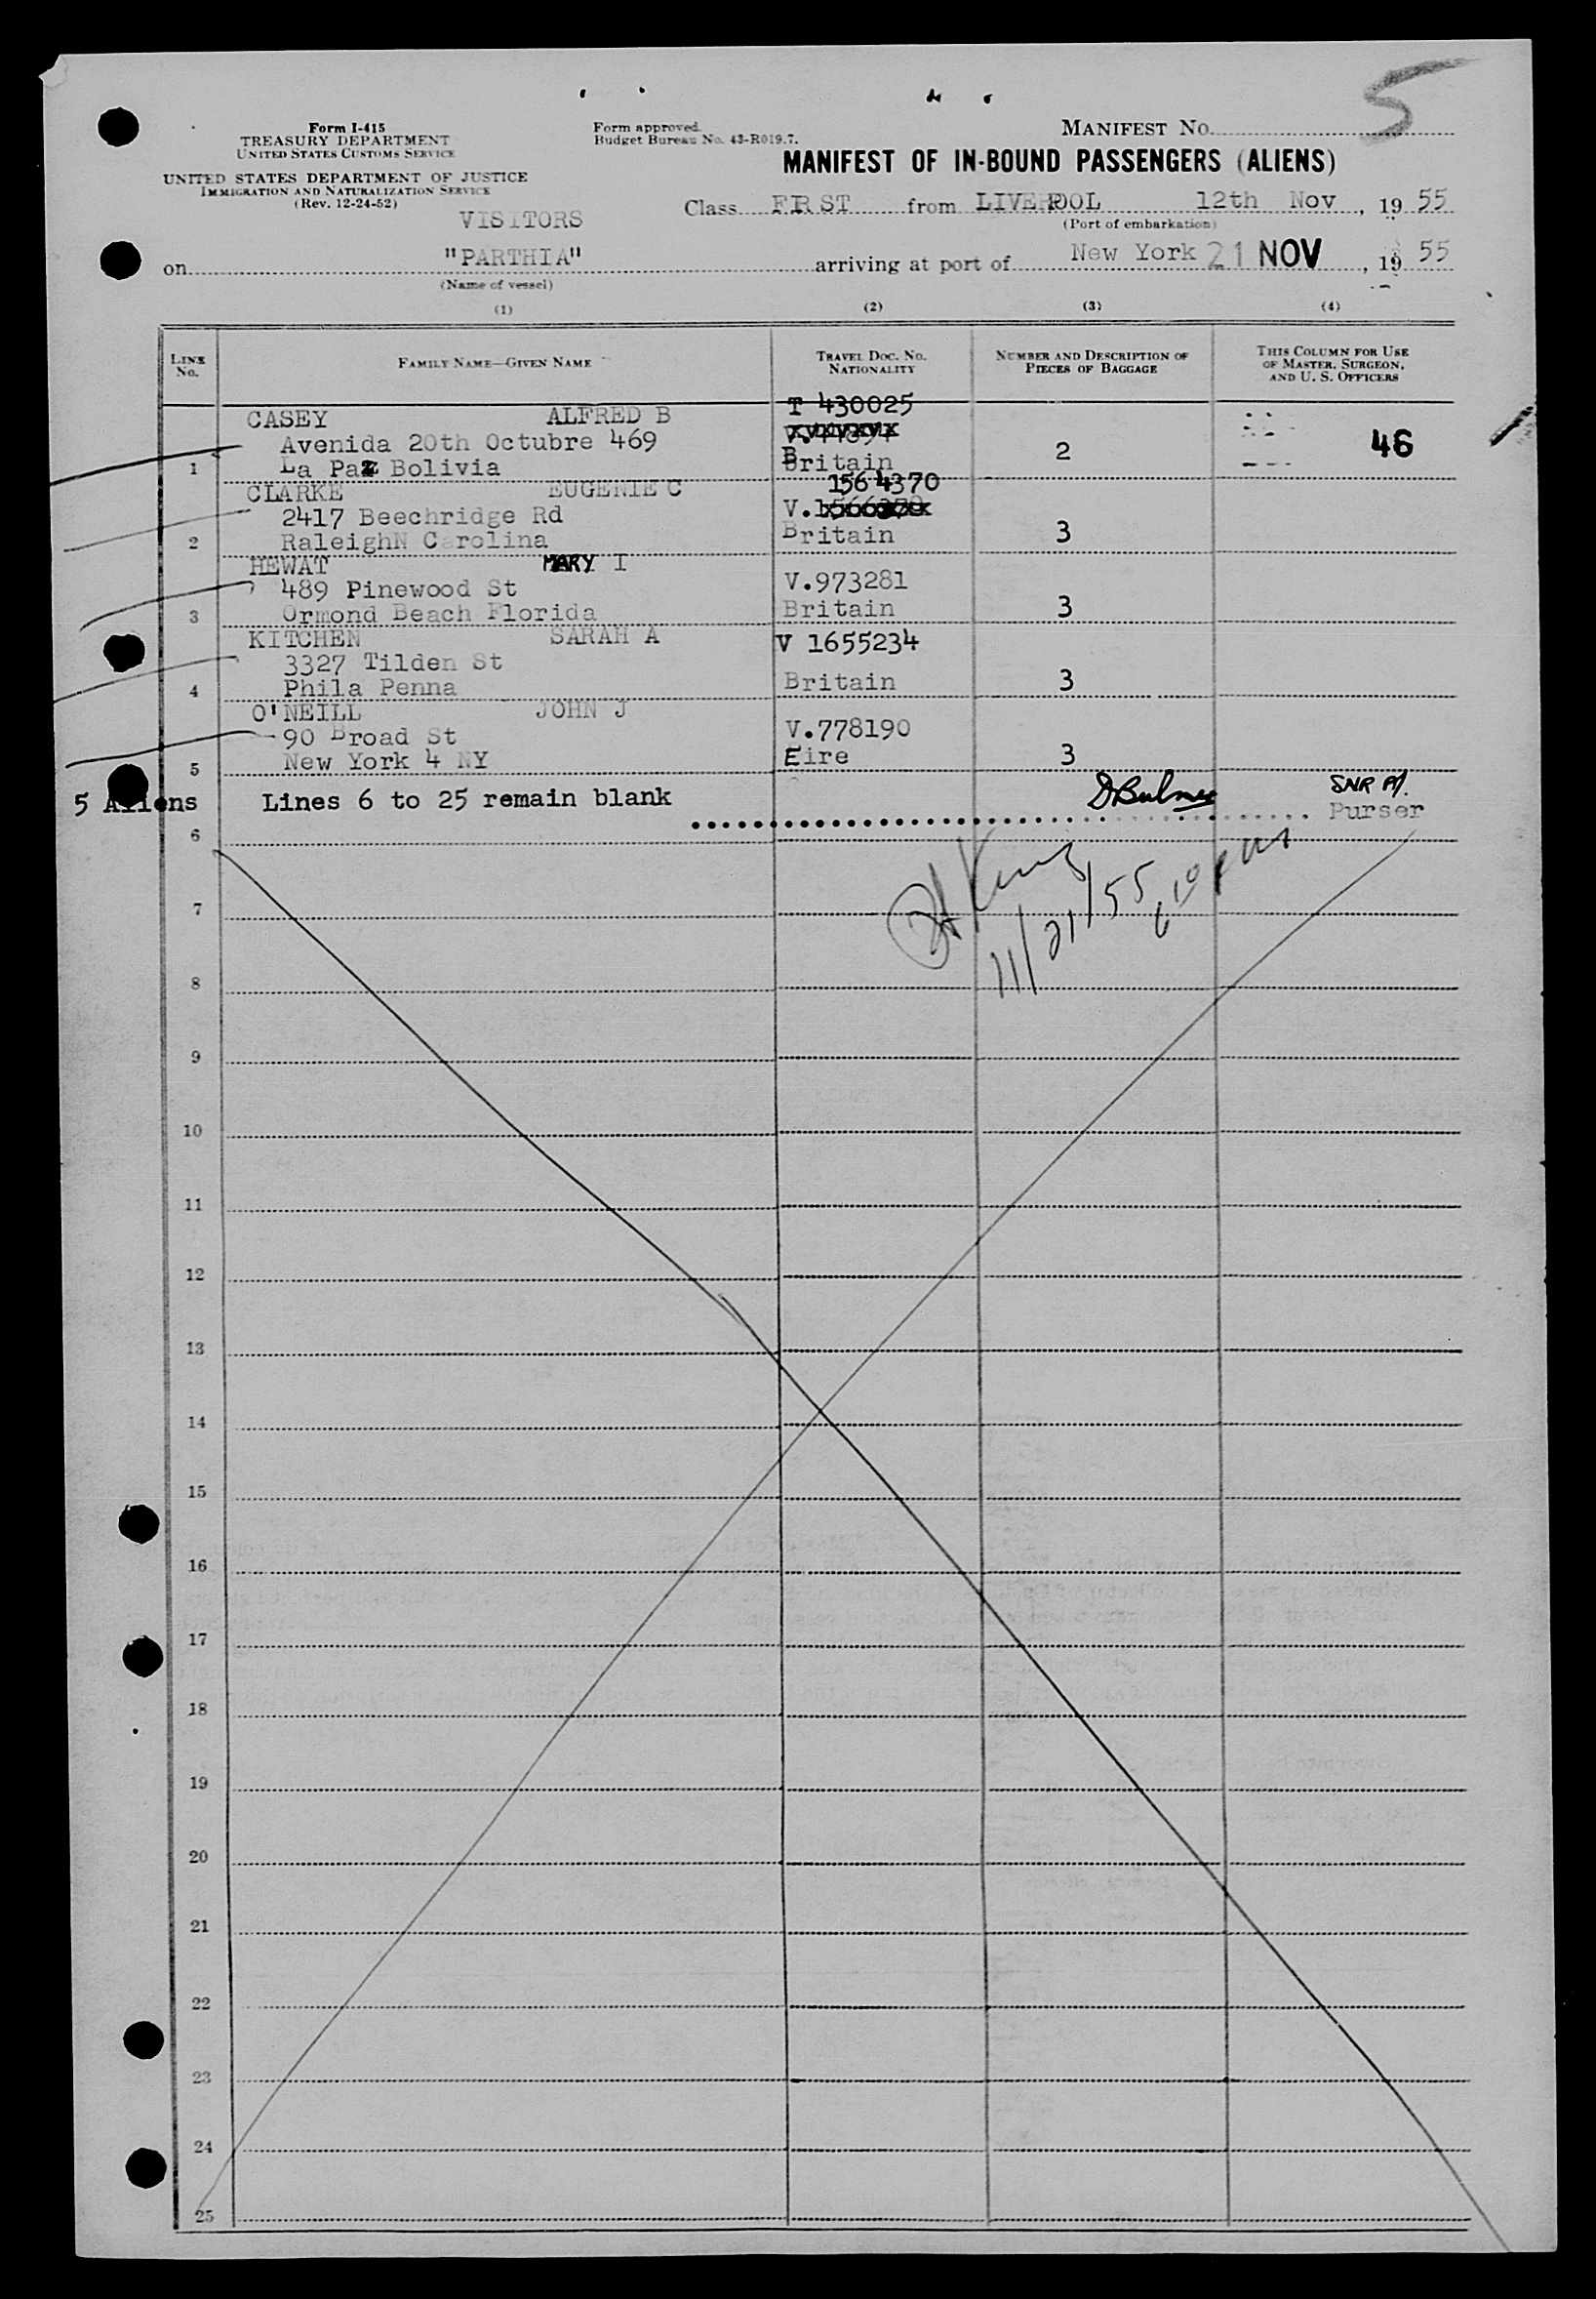 5
Form I-415
TREASURY DEPARTMENT
UNITED STATES CUSTOMS SERVICE
UNITED STATES DEPARTMENT OF JUSTICE
IMMIGRATION AND NATURALIZATION SERVICE
(Rev. 12-24-52)
Form approved.
Budget Bureau No. 43-R019.7.
MANIFEST NO.
MANIFEST OF IN-BOUND PASSENGERS (ALIENS)
VISITORS
Class FIRST from LIVERPOOL 12th Nov, 19 55
(Port of embarkation)
on "PARTHIA" arriving at port of New York 21 NOV, 19 55
(Name of vessel)
(1) (2) (3) (4)
LINE No. FAMILY NAME—GIVEN NAME TRAVEL DOC. NO. NATIONALITY NUMBER AND DESCRIPTION OF PIECES OF BAGGAGE THIS COLUMN FOR USE OF MASTER, SURGEON, AND U. S. OFFICERS
CASEY ALFRED B T 430025
Avenida 20th Octubre 469 46
1 La Paz Bolivia Britain 2
CLARKE EUGENIE C 1564370
2417 Beechridge Rd V.
2 RaleighN Carolina Britain 3
HEWAT MARY I
489 Pinewood St V.973281
3 Ormond Beach Florida Britain 3
KITCHEN SARAH A V 1655234
3327 Tilden St
4 Phila Penna Britain 3
O'NEILL JOHN J
90 Broad St V.778190
5 New York 4 NY Eire 3
5 Aliens Lines 6 to 25 remain blank DBulmer SNR A/.
Purser
6
King
11/21/55 6 10 pm
7
8
9
10
11
12
13
14
15
16
17
18
19
20
21
22
23
24
25